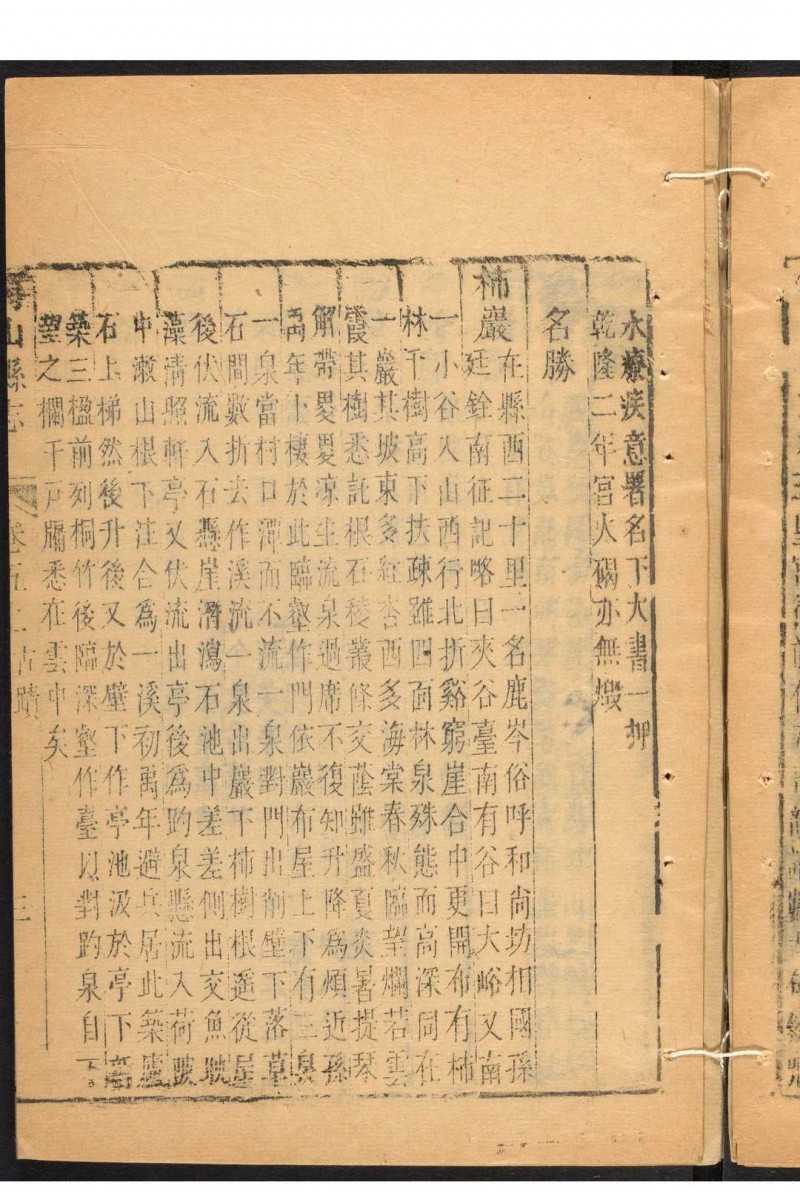 水療疾意署名下大書一押
乾隆二年宮火碣亦無燬
名勝
柿巖在縣西二十里一名鹿岑俗呼和尚坊相國孫
廷銓南征記略曰夾谷臺南有谷曰大峪又南
一小谷入山西行北折谿窮崖合中更開布有柿
林千樹高下扶疎雖四面林泉殊態而高深同在
一巖其坡東多紅杏西多海棠春秋臨望爛若雲
霞其樹悉託根石稜叢條交蔭雖盛夏炎暑提琴
解帶畟畟凉生流泉過席不復知升降為煩近孫
禹年卜棲於此臨壑作門依巖布屋上下有三泉
一泉當村口潭而不流一泉對門出削壁下落草
石間數折去作溪流一泉出巖下柿樹根遥從屋
後伏流入石懸崖潛瀉石池中差差側出交魚跋
藻清照軒亭又伏流出亭後為趵泉懸流入荷陂
中潄山根下注合為一溪初禹年避兵居此築廬
石上梯然後升後又於壁下作亭池汲於亭下
築三楹前列桐竹後臨深壑作臺以對趵泉自下
望之欄干戸牖悉在雲中矣
山縣志 卷五上古蹟 三